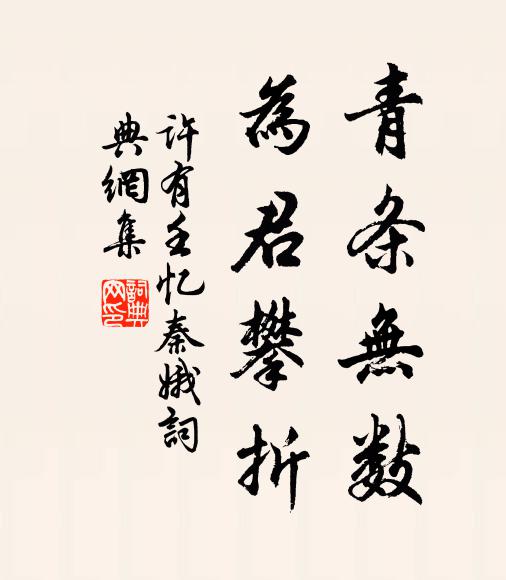 青条無数
為君攀折
許有壬忆秦娥詞
典網集
詞典
网印